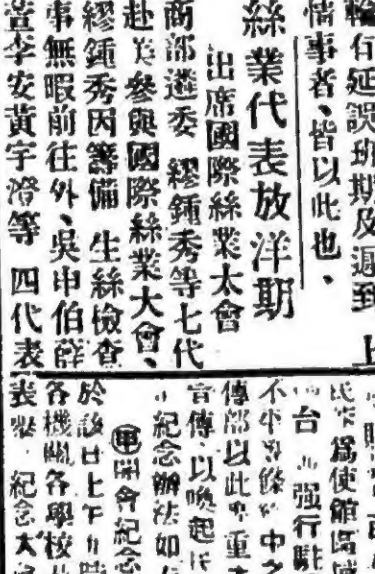 輪有延誤班期及遲到、上
情事者、皆以此也、
絲業代表放洋期
出席國際絲業大會
商部遴委 繆鍾秀等七代
赴美參與國際絲業大會、
繆鍾秀因籌備 生絲檢查
事無暇前往外、吳申伯薛
萱李安黃宇澄等 四代表
民衆爲使館區域
台 强行駐
不平等條約中之
傳部以此 重大
宣傳以喚起民
紀念辦法如
開會紀念
於該日上午九時
各機關各學校
表 紀念大